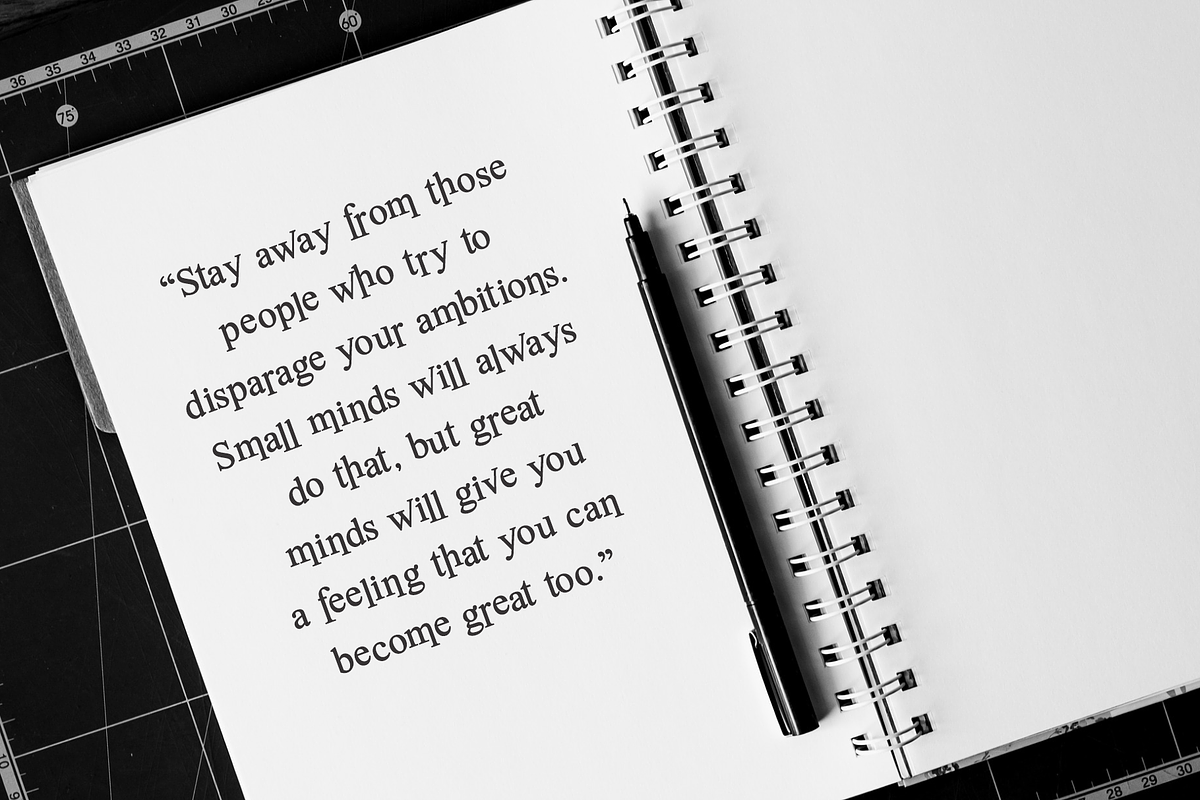 36 35 34 33 32 31 30 29
60°
75°
“Stay away from those
people who try to
disparage your ambitions.
Small minds will always
do that, but great
minds will give you
a feeling that you can
become great too.”
10
9
28 29 30